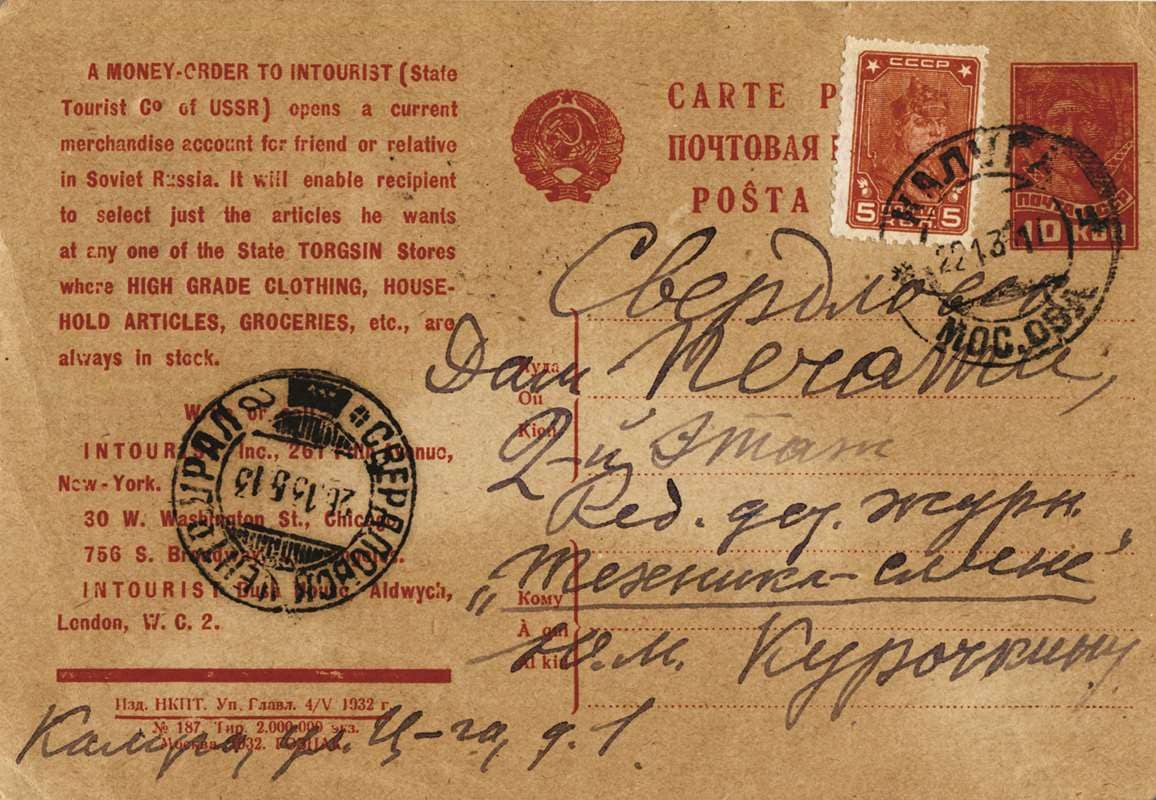 A MONEY-ORDER TO INTOURIST (State
Tourist Co of USSR) opens a current
merchandise account for friend or relative
in Soviet Russia. It will enable recipient
to select just the articles he wants
at any one of the State TORGSIN Stores
where HIGH GRADE CLOTHING, HOUSE-
HOLD ARTICLES, GROCERIES, etc., are
always in stock.
INTOURIST Inc., 261
New-York.
30 W. Washington St., Chicago
756 S.
INTOURIST Aldwych,
London, W. C. 2.
Изд. НКПТ. Уп. Главл. 4/V 1932 г.
№ 187. Тир. 2.000.000 экз.
Москва 1932. ГОЗНАК
CARTE
ПОЧТОВАЯ
POŜTA
СССР
5 5
10 КОП
КАЛУГА
МОС. ОБЛ
СВЕРДЛОВСК
Свердловск
Дом Печати,
Куда
Où
Kien
2-й Этаж
Ред. дет. журн.
"Техника-смене"
Кому
À qui
Al kiu
Ю.М. Курочкину
Калуга, ул. Ц-го, д. 1